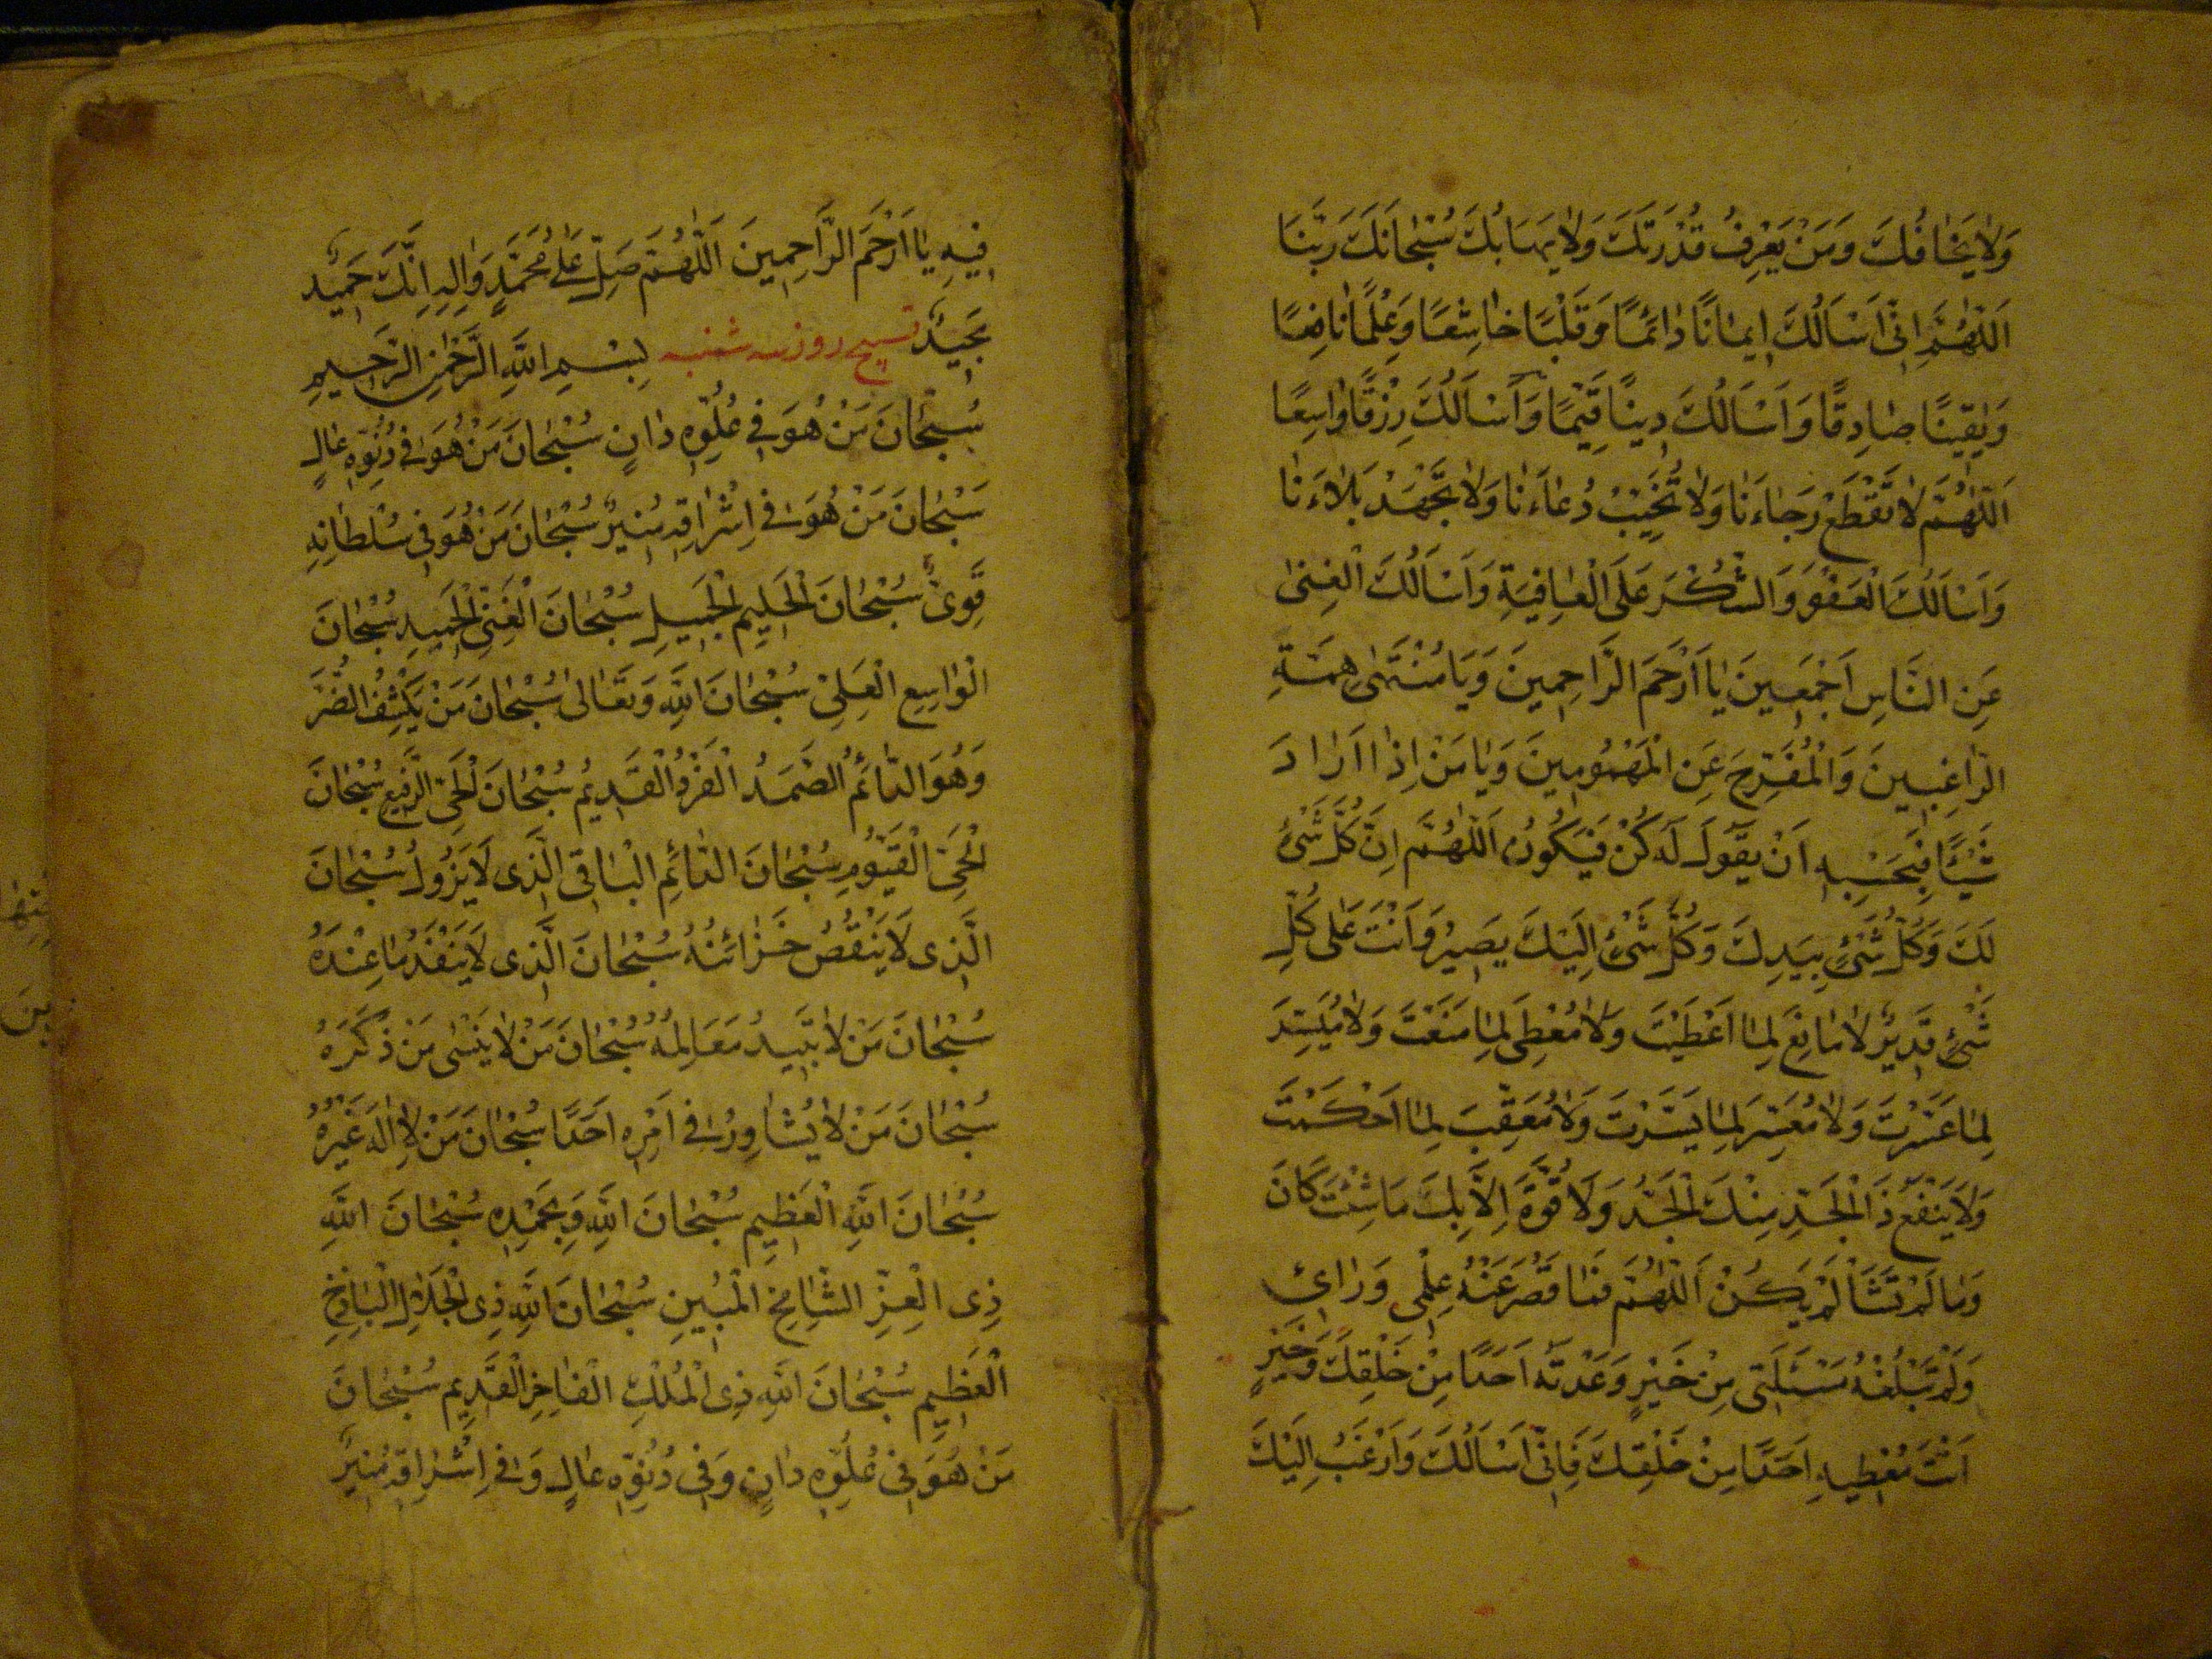 وَلَا يَخَافُكَ وَمَنْ يَعْرِفُ قُدْرَتَكَ وَلَا يَهَابُكَ سُبْحَانَكَ رَبَّنَا
اَللّٰهُمَّ اِنِّى اَسْاَلُكَ اِيمَانًا دَائِمًا وَقَلْبًا خَاشِعًا وَعِلْمًا نَافِعًا
وَيَقِينًا صَادِقًا وَاَسْاَلُكَ دِينًا قَيِّمًا وَاَسْاَلُكَ رِزْقًا وَاسِعًا
اَللّٰهُمَّ لَا تَقْطَعْ رَجَاءَنَا وَلَا تُخَيِّبْ دُعَاءَنَا وَلَا تَجْهَدْ بَلَاءَنَا
وَاَسْاَلُكَ الْعَفْوَ وَالشُّكْرَ عَلَى الْعَافِيَةِ وَاَسْاَلُكَ الْغِنٰى
عَنِ النَّاسِ اَجْمَعِينَ يَا اَرْحَمَ الرَّاحِمِينَ وَيَا مُنْتَهٰى هِمَّةِ
الرَّاغِبِينَ وَالْمُفَرِّجَ عَنِ الْمَهْمُومِينَ وَيَا مَنْ اِذَا اَرَادَ
شَيْئًا فَحَسْبُهِ اَنْ يَقُولَ لَهُ كُنْ فَيَكُونُ اَللّٰهُمَّ اِنَّ كُلَّ شَىْءٍ
لَكَ وَكُلَّ شَىْءٍ بِيَدِكَ وَكُلَّ شَىْءٍ اِلَيْكَ يَصِيرُ وَاَنْتَ عَلٰى كُلِّ
شَىْءٍ قَدِيرٌ لَا مَانِعَ لِمَا اَعْطَيْتَ وَلَا مُعْطِىَ لِمَا مَنَعْتَ وَلَا مُيَسِّرَ
لِمَا عَسَّرْتَ وَلَا مُعَسِّرَ لِمَا يَسَّرْتَ وَلَا مُعَقِّبَ لِمَا اَحْكَمْتَ
وَلَا يَنْفَعُ ذَا الْجَدِّ مِنْكَ الْجَدُّ وَلَا قُوَّةَ اِلَّا بِكَ مَا شِئْتَ كَانَ
وَمَا لَمْ تَشَأْ لَمْ يَكُنْ اَللّٰهُمَّ فَمَا قَصُرَ عَنْهُ عِلْمِى وَرَاْيِى
وَلَمْ تَبْلُغْهُ مَسْئَلَتِى مِنْ خَيْرٍ وَعَدْتَهُ اَحَدًا مِنْ خَلْقِكَ وَخَيْرٍ
اَنْتَ مُعْطِيهِ اَحَدًا مِنْ خَلْقِكَ فَاِنِّى اَسْاَلُكَ وَاَرْغَبُ اِلَيْكَ
فِيهِ يَا اَرْحَمَ الرَّاحِمِينَ اَللّٰهُمَّ صَلِّ عَلٰى مُحَمَّدٍ وَاٰلِهِ اِنَّكَ حَمِيدٌ
مَجِيدٌ تسبيح روز سه شنبه بِسْمِ اللّٰهِ الرَّحْمٰنِ الرَّحِيمِ
سُبْحَانَ مَنْ هُوَ فِى عُلُوِّهِ دَانٍ سُبْحَانَ مَنْ هُوَ فِى دُنُوِّهِ عَالٍ
سُبْحَانَ مَنْ هُوَ فِى اِشْرَاقِهِ مُنِيرٌ سُبْحَانَ مَنْ هُوَ فِى سُلْطَانِهِ
قَوِىٌّ سُبْحَانَ الْحَلِيمِ الْجَمِيلِ سُبْحَانَ الْغَنِىِّ الْحَمِيدِ سُبْحَانَ
الْوَاسِعِ الْعَلِىِّ سُبْحَانَ اللّٰهِ وَتَعَالٰى سُبْحَانَ مَنْ يَكْشِفُ الضُّرَّ
وَهُوَ الدَّائِمُ الصَّمَدُ الْفَرْدُ الْقَدِيمُ سُبْحَانَ الْحَىِّ الرَّفِيعِ سُبْحَانَ
الْحَىِّ الْقَيُّومِ سُبْحَانَ الدَّائِمِ الْبَاقِى الَّذِى لَا يَزُولُ سُبْحَانَ
الَّذِى لَا يَنْقُصُ خَزَائِنُهُ سُبْحَانَ الَّذِى لَا يَنْفَدُ مَا عِنْدَهُ
سُبْحَانَ مَنْ لَا تَبِيدُ مَعَالِمُهُ سُبْحَانَ مَنْ لَا يَنْسٰى مَنْ ذَكَرَهُ
سُبْحَانَ مَنْ لَا يُشَاوِرُ فِى اَمْرِهِ اَحَدًا سُبْحَانَ مَنْ لَا اِلٰهَ غَيْرُهُ
سُبْحَانَ اللّٰهِ الْعَظِيمِ سُبْحَانَ اللّٰهِ وَبِحَمْدِهِ سُبْحَانَ اللّٰهِ
ذِى الْعِزِّ الشَّامِخِ الْمُبِينِ سُبْحَانَ اللّٰهِ ذِى الْجَلَالِ الْبَاذِخِ
الْعَظِيمِ سُبْحَانَ اللّٰهِ ذِى الْمُلْكِ الْفَاخِرِ الْقَدِيمِ سُبْحَانَ
مَنْ هُوَ فِى عُلُوِّهِ دَانٍ وَفِى دُنُوِّهِ عَالٍ وَفِى اِشْرَاقِهِ مُنِيرٌ